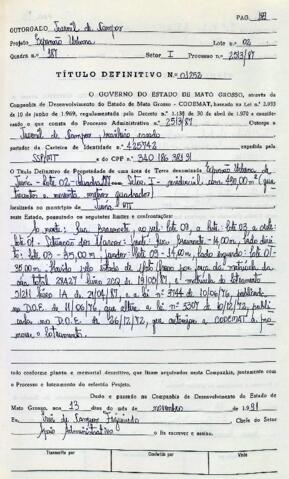 PAG.
OUTORGADO Juvenil de Campos
Projeto Expansão Urbana Lote no 02
Quadra nº 187 Setor I Processo nº 2513/87
TÍTULO DEFINITIVO N.01252
O GOVERNO DO ESTADO DE MATO GROSSO, através da
Companhia de Desenvolvimento do Estado de Mato Grosso - CODEMAT, baseado na Lei n.º 2.933
10 de junho de 1969, regulamentada pelo Decreto n.º 1.138 de 30 de abril de 1970 e
que consta do Processo Administrativo n.º 2513/87 Outorga a
Juvenil de Campos, brasileiro, casado
portador da Carteira de Identidade n.º 425742
SSP/MT e do CPF n.º 340 186 381 91
O Título Definitivo de Propriedade de uma área de Terra denominada Expansão Urbana de
Juína - Lote 02 - Quadra 187 - Setor I - residencial com 490,00 m² (quatrocentos e noventa metros quadrados)
localizada no município de Juína MT
neste Estado, possuindo os seguintes limites e confrontações:
Ao norte: Rua; ao sul: lote 09, a leste: lote 03, a oeste:
lote 01 - Frente: Rua - 14,00m, lado direito:
lote 03 - 35,00m, fundos: lote 09 - 14,00m, lado esquerdo: lote 01 -
35,00m.
lei nº 3744 de 10/06/76, publicada
no D.O.E. de 11/06/76, que altera a lei nº 3307 de 18/12/72, publicada
no D.O.E. de 26/12/72, que autoriza a CODEMAT a promover
o loteamento.
tudo conforme planta e memorial descritivo, que ficam arquivados nesta Companhia, juntamente com
o Processo e loteamento do referido Projeto.
Dado e passado na Companhia de Desenvolvimento do Estado de
Mato Grosso, aos 13 dias do mês de novembro de 1.991
Eu, de Campos Figueiredo Chefe do Setor
Apoio Administrativo o fiz escrever e assino.
Transcrito por Conferido por Visto